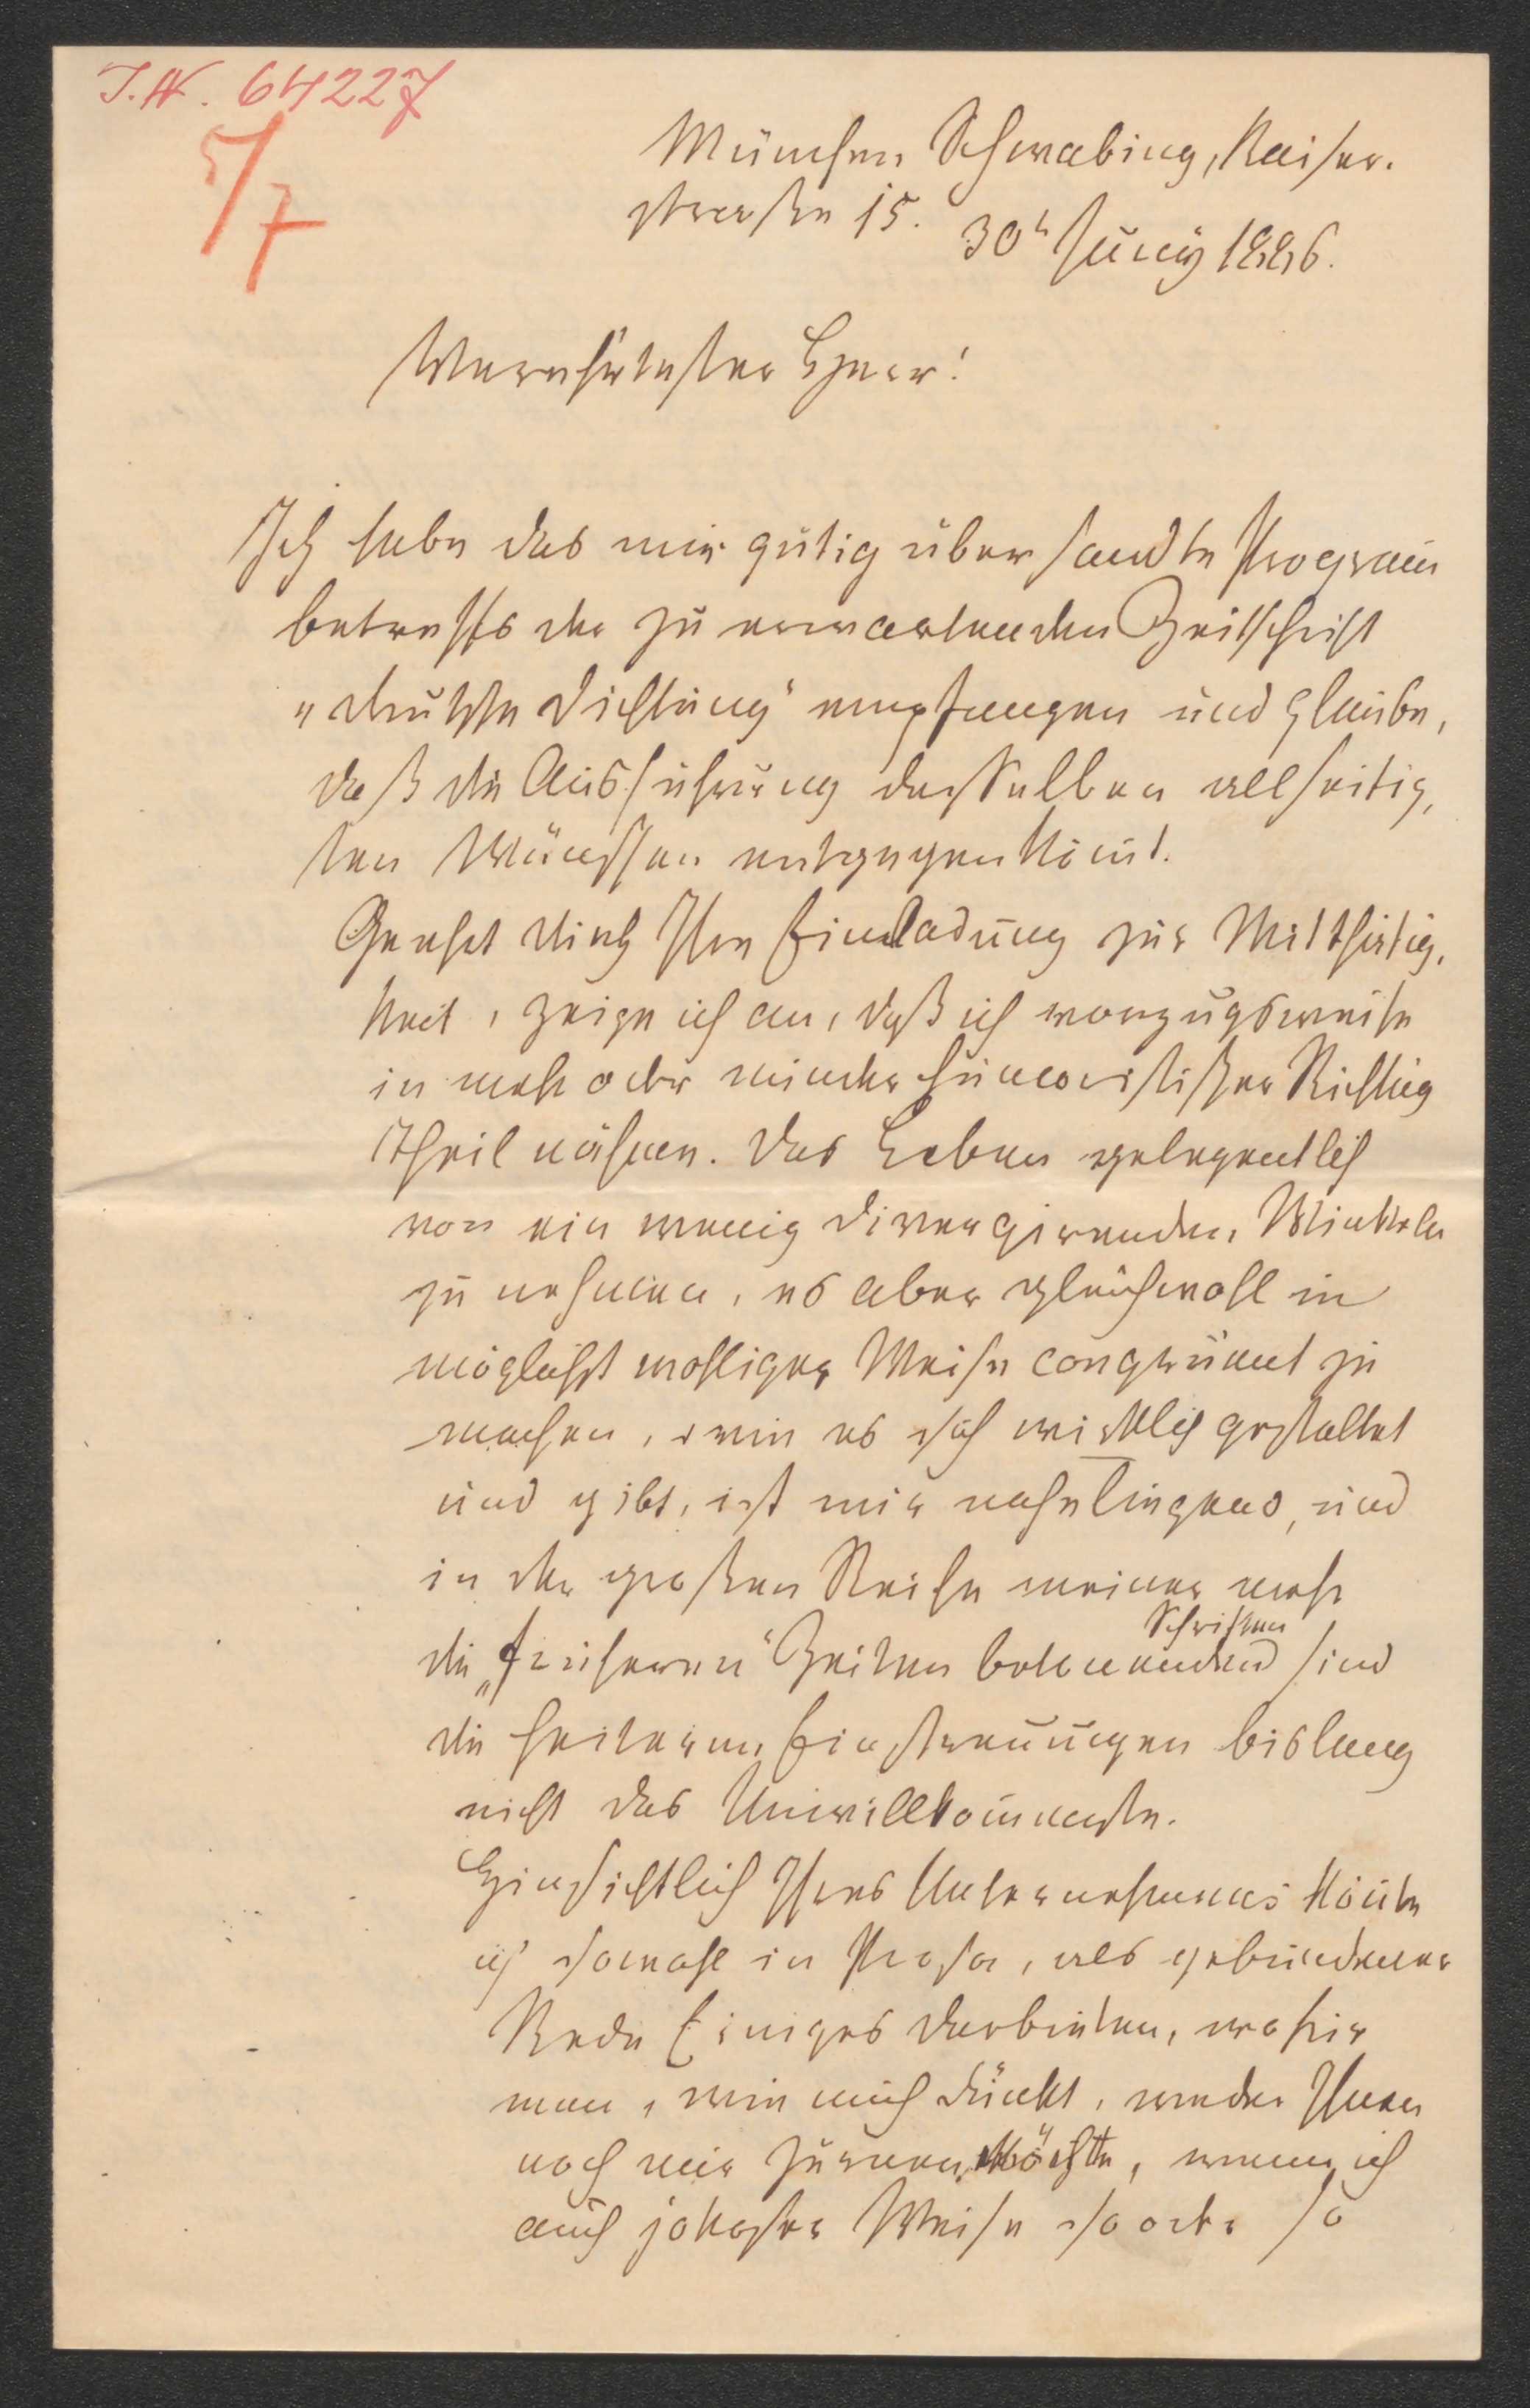 J.N. 64227
5/7
München Schwabing, Kaiser-
straße 15. 30t Juny 1886.
Verehrtester Herr!
Ich habe das mir gütig übersandte Program̅
betreffs der zu erwartenden Zeitschrift
„deutsche Dichtung" empfangen und glaube,
daß die Ausführung desselben allseitig-
sten Wünschen entgegenkom̅t.
Geehrt durch Ihre Einladung zur Mitthätig-
keit, zeige ich an, daß ich vorzugsweise
in mehr oder minder humoristischer Richtung
Theil nähme. Das Leben gelegentlich
von ein wenig divergirenden Winkeln
zu nehmen, es aber gleichwohl in
möglichst wohliger Weise congruent zu
machen, wie es sich wirklich gestaltet
und gibt, ist mir naheliegend, und
in der großen Reihe meiner mehr
Schriften
die „früheren" Zeiten betonenden sind
die heiteren Einstreuungen bislang
nicht das Unwillkom̅enste.
Hinsichtlich Ihres Unternehmens kön̅te
ich sowohl in Prosa, als gebundener
Rede Einiges darbieten, wofür
man, wie mich dünkt, weder Ihnen
noch mir zürnen möchte, wenn ich
auch jokoser Weise so oder so